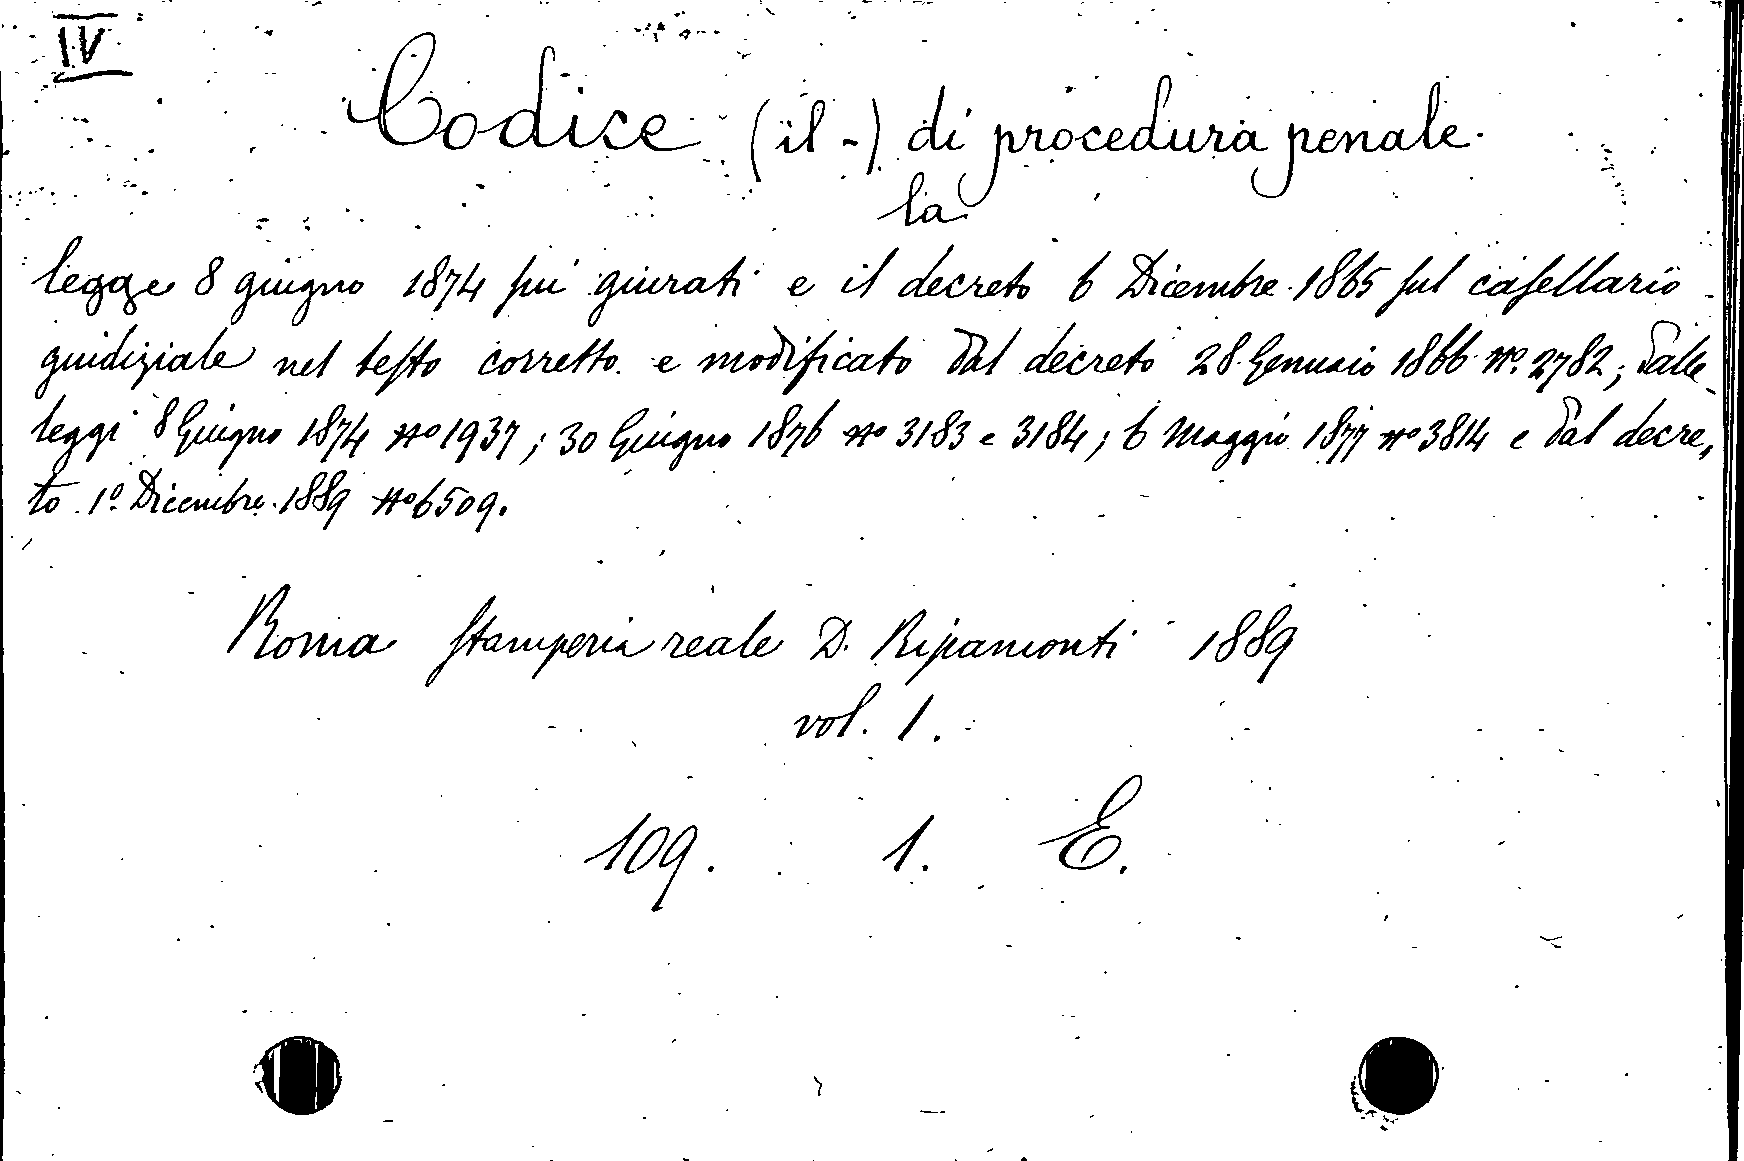 IV
Codice (il -) di procedura penale.
la
legge 8 giugno 1874 sui giurati e il decreto 6 Dicembre 1865 sul casellario
guidiziale nel testo corretto e modificato dal decreto 28 Gennaio 1866 No. 2782; dalle
leggi 8 Giugno 1874 No 1937; 30 Giugno 1876 No 3183 e 3184; 6 Maggio 1877 No 3814 e dal decre,
to 1º Dicembre 1889 No 6509.
Roma Stamperia reale D. Ripamonti 1889
vol. 1.
109. 1. E.